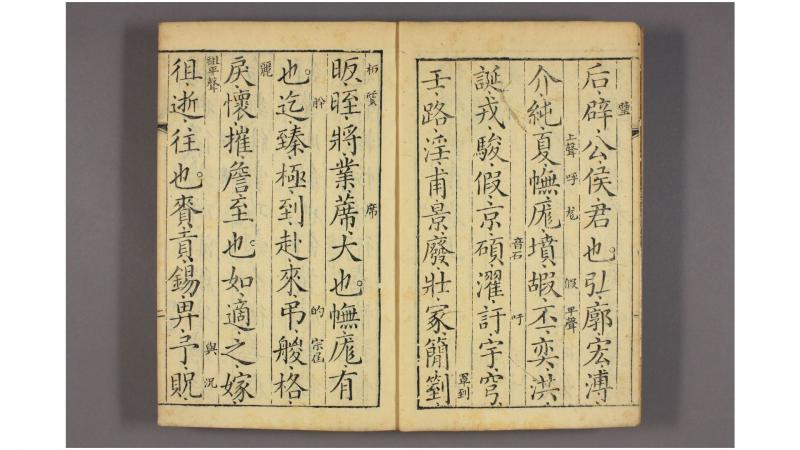 璧
后辟公侯君也。弘廓宏溥
上聲 呼 尨 假 平聲
介純夏幠厖墳嘏丕奕洪
音石 吁
誕戎駿假京碩濯訏宇穹
罩到
壬路淫甫景廢壯冢簡箌
質 席
昄晊將業蓆大也。幠厖有
的 宗屆
也。迄臻極到赴來弔艐格
麗
戾懷摧詹至也。如適之嫁
祖平聲 與 况
徂逝往也。賚貢錫畀予貺